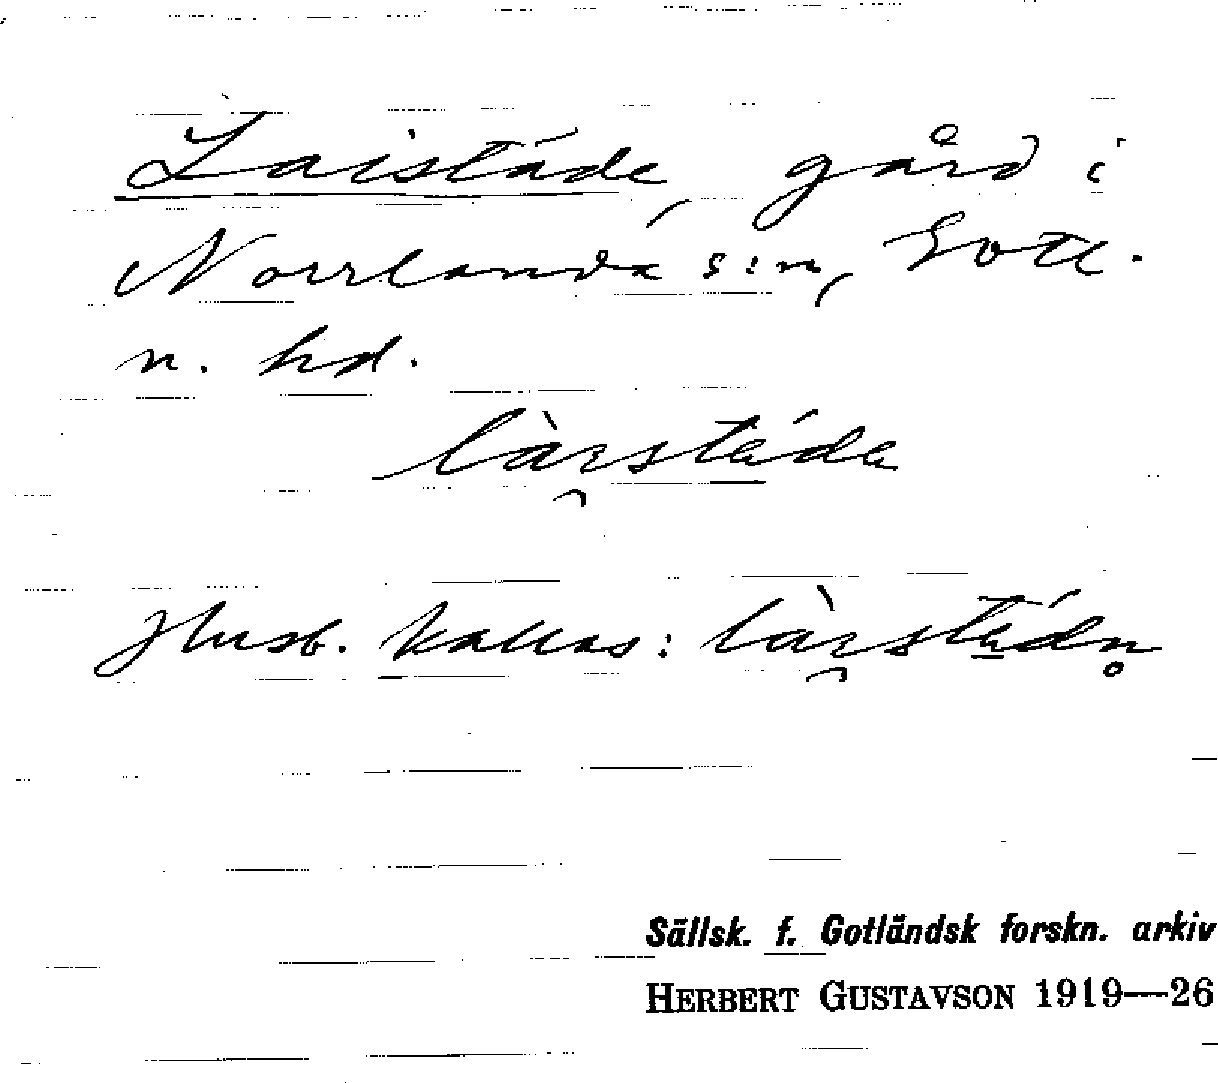 Laistáde, gård i
Norrlanda s:n, Gotl.
n. hd.
làı̯stáda
Husb. kallas: làı̯stádn̥
Sällsk. f. Gotländsk forskn. arkiv
HERBERT GUSTAVSON 1919—26